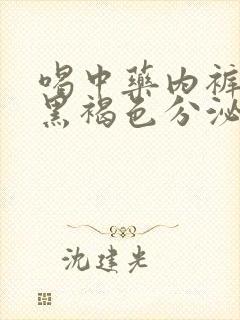 喝中藥内裤
黑褐色分泌
沈建光